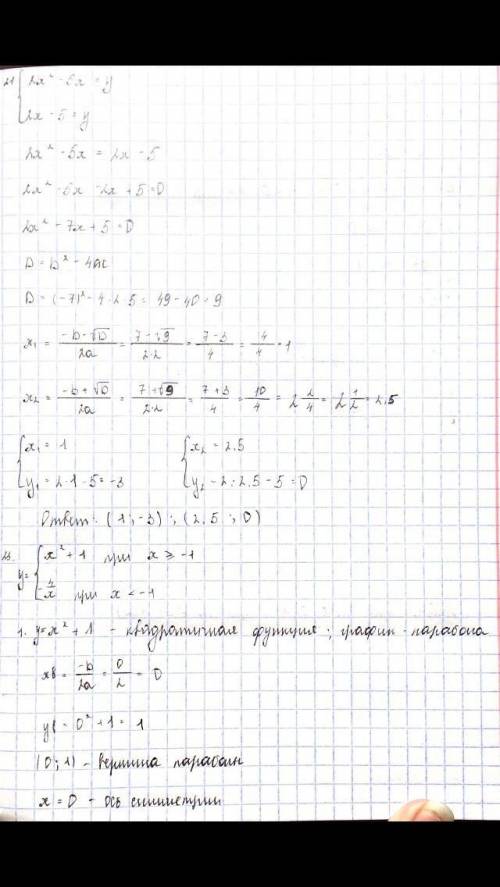 21 { 2x² - 5x = y
2x - 5 = y
2x² - 5x = 2x - 5
2x² - 5x - 2x + 5 = 0
2x² - 7x + 5 = 0
D = b² - 4ac
D = (-7)² - 4·2·5 = 49 - 40 = 9
x₁ = (-b - √D)/2a = (7 - √9)/2·2 = (7 - 3)/4 = 4/4 = 1
x₂ = (-b + √D)/2a = (7 + √9)/2·2 = (7 + 3)/4 = 10/4 = 2 2/4 = 2 1/2 = 2.5
{ x₁ = 1 { x₂ = 2.5
y₁ = 2·1 - 5 = -3 y₂ = 2·2.5 - 5 = 0
Ответ: (1; -3); (2.5; 0)
y = { x² + 1 при x ≥ -1
-4/x при x < -1
1. y = x² + 1 - квадратичная функция; график - парабола
xв = -b/2a = 0/2 = 0
yв = 0² + 1 = 1
(0; 1) - вершина параболы
x = 0 - ось симметрии